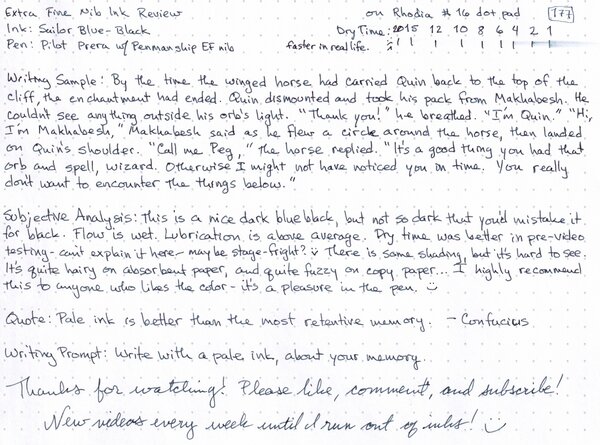 Extra Fine Nib Ink Review on Rhodia #16 dot pad 177
Ink: Sailor Blue-Black Dry Time: 20 15 12 10 8 6 4 2 1
Pen: Pilot Prera w/ Penmanship EF nib faster in real life.
Writing Sample: By the time the winged horse had carried Quin back to the top of the
cliff, the enchantment had ended. Quin dismounted and took his pack from Makhabesh. He
couldn't see anything outside his orb's light. "Thank you!" he breathed. "I'm Quin." "Hi,
I'm Makhabesh," Makhabesh said as he flew a circle around the horse, then landed
on Quin's shoulder. "Call me Peg," the horse replied. "It's a good thing you had that
orb and spell, wizard. Otherwise I might not have noticed you in time. You really
don't want to encounter the things below."
Subjective Analysis: This is a nice dark blue black, but not so dark that you'd mistake it
for black. Flow is wet. Lubrication is above average. Dry time was better in pre-video
testing - can't explain it here - maybe stage-fright? There is some shading, but it's hard to see.
It's quite hairy on absorbent paper, and quite fuzzy on copy paper... I highly recommend
this to anyone who likes the color - it's a pleasure in the pen.
Quote: Pale ink is better than the most retentive memory. - Confucius
Writing Prompt: Write with a pale ink, about your memory.
Thanks for watching! Please like, comment, and subscribe!
New videos every week until I run out of inks!